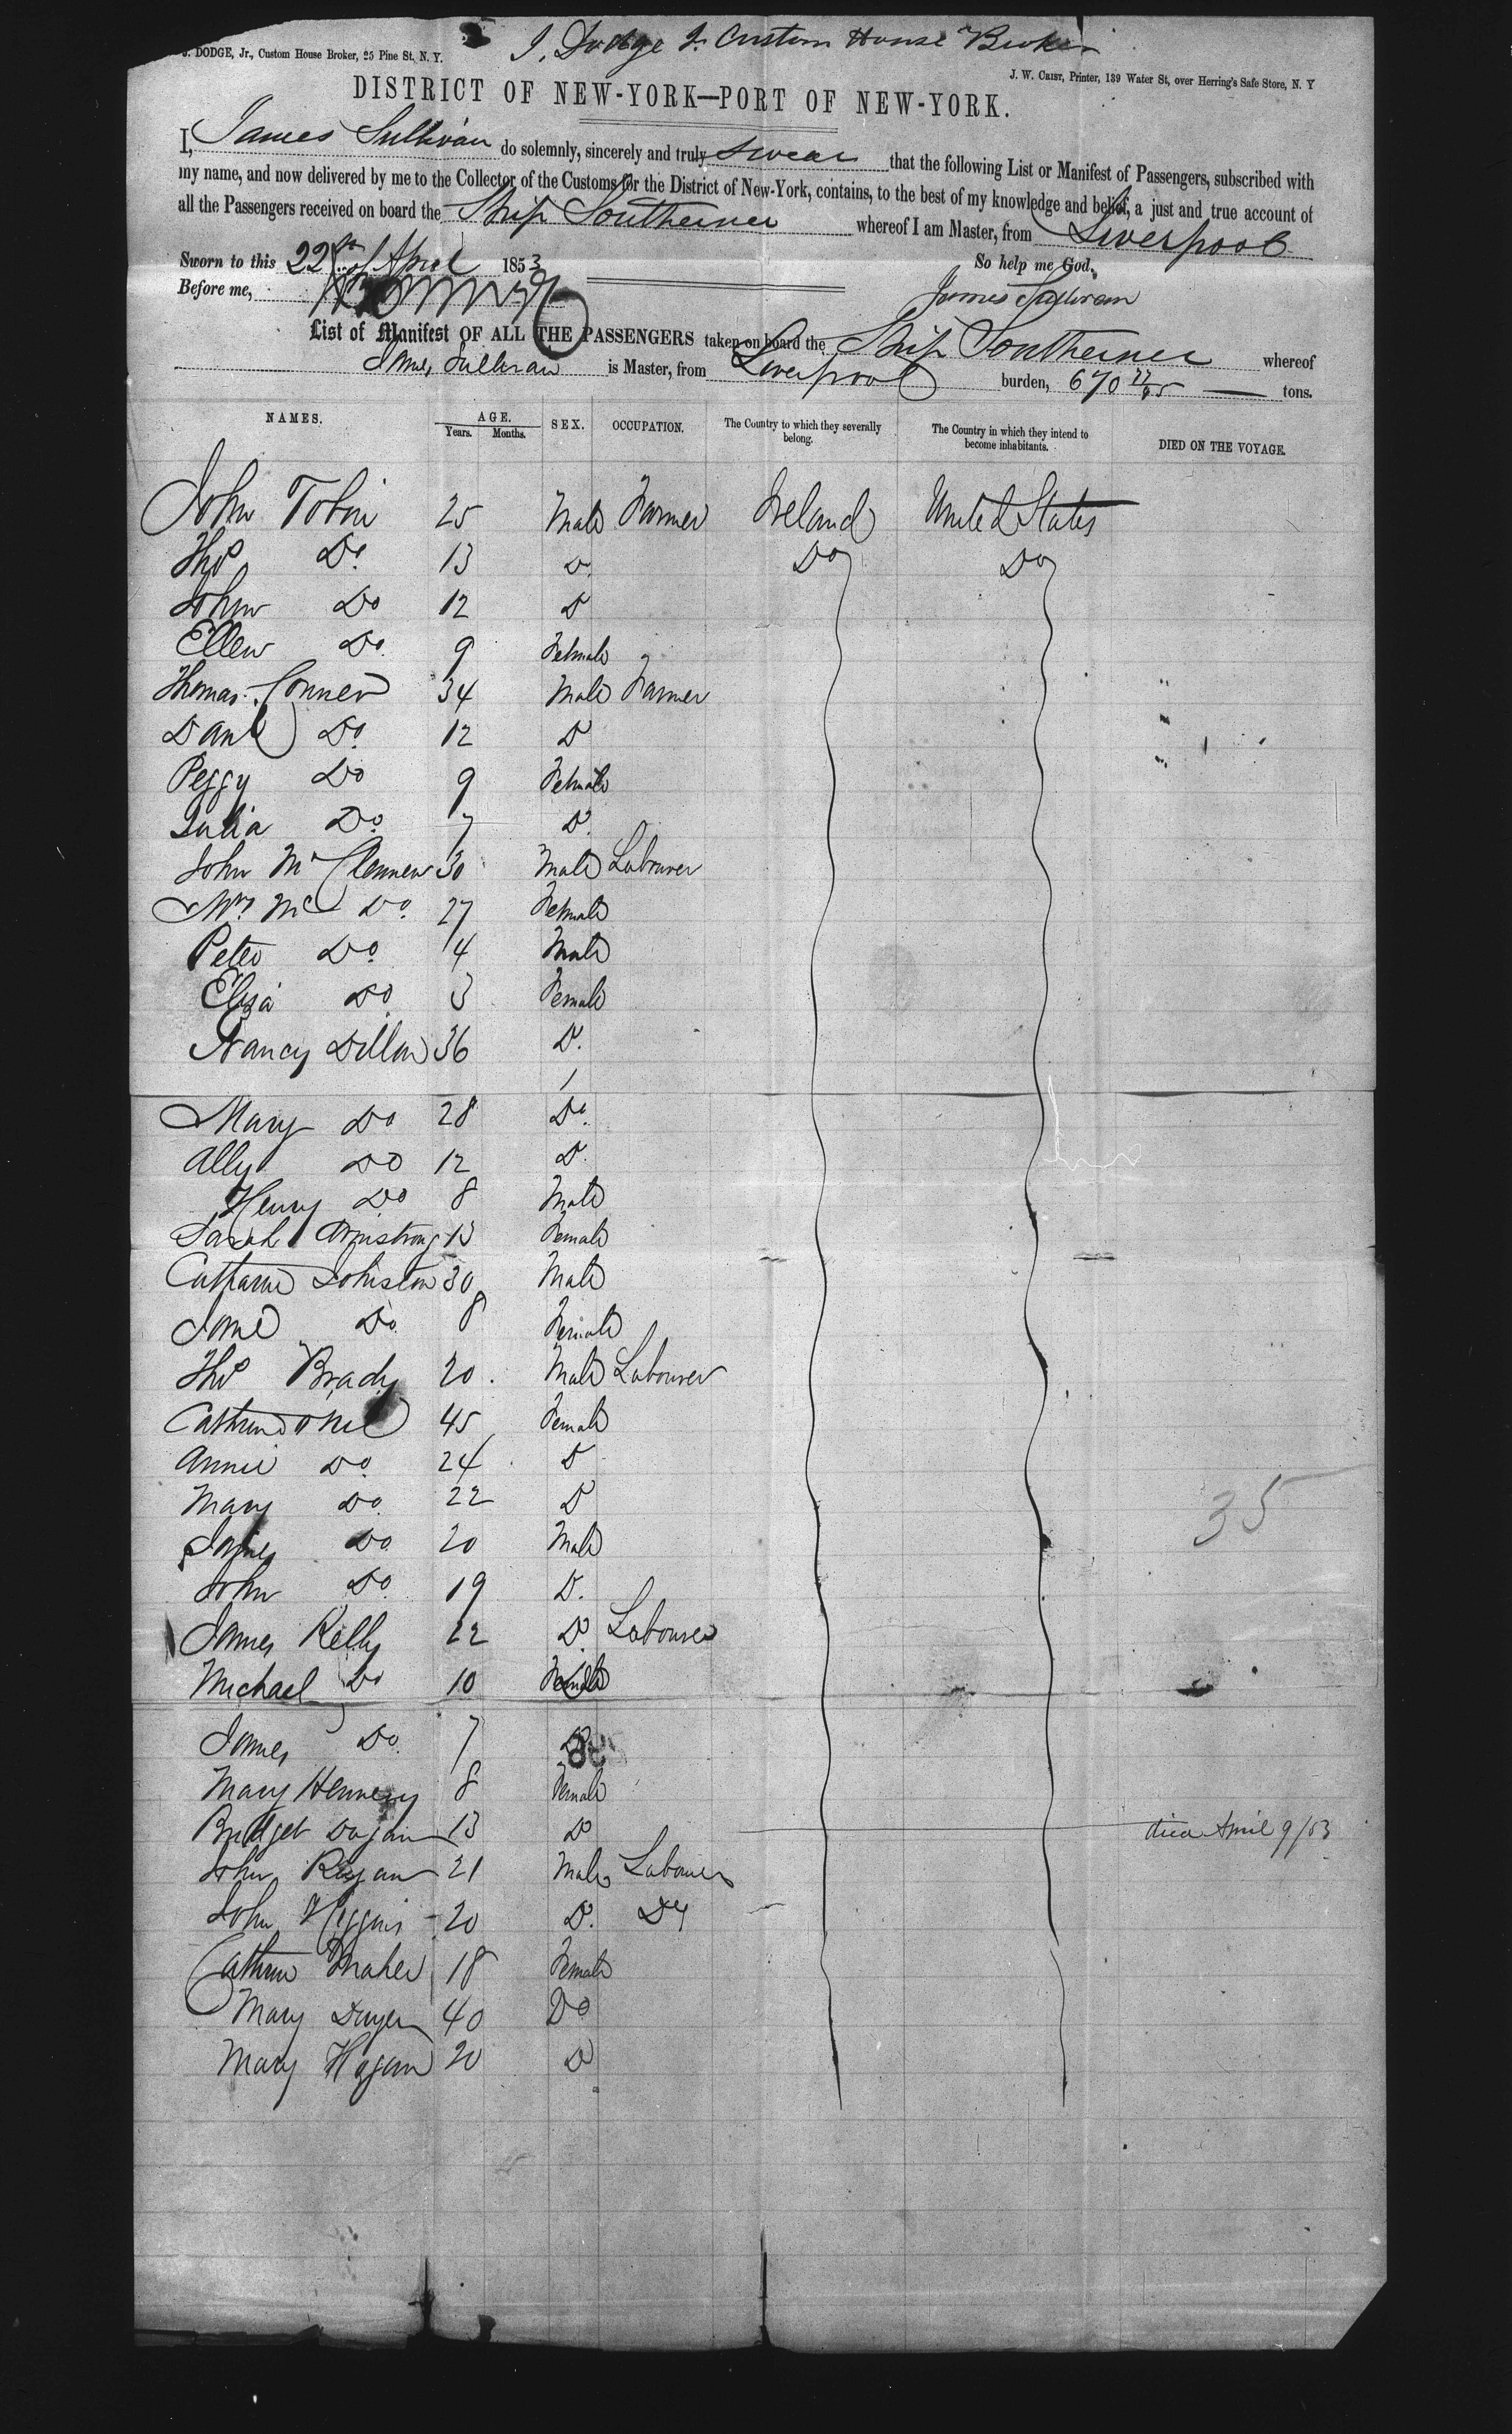 J. DODGE, Jr., Custom House Broker, 25 Pine St, N. Y.
J. Dodge Jr Custom House Broker
J. W. CRIST, Printer, 139 Water St, over Herring's Safe Store, N. Y
DISTRICT OF NEW-YORK—PORT OF NEW-YORK.
I, James Sullivan do solemnly, sincerely and truly swear that the following List or Manifest of Passengers, subscribed with
my name, and now delivered by me to the Collector of the Customs for the District of New-York, contains, to the best of my knowledge and belief, a just and true account of
all the Passengers received on board the Ship Southerner whereof I am Master, from Liverpool
Sworn to this 22d of April 1853 So help me God.
Before me, James Sullivan
List of Manifest OF ALL THE PASSENGERS taken on board the Ship Southerner whereof
James Sullivan is Master, from Liverpool burden, 670 77/95 tons.
NAMES. AGE. Years. Months. SEX. OCCUPATION. The Country to which they severally belong. The Country in which they intend to become inhabitants. DIED ON THE VOYAGE.
John Tobin 25 Male Farmer Ireland United States
Thos Do 13 Do Do Do
John Do 12 Do
Ellen Do 9 Female
Thomas Conner 34 Male Farmer
Danl Do 12 Do
Peggy Do 9 Female
Julia Do 7 Do
John Mc Clennen 30 Male Labourer
Mrs Mc Do 27 Female
Peter Do 4 Male
Eliza Do 3 Female
Nancy Dillon 36 Do
Mary Do 28 Do
Ally Do 12 Do
Henry Do 8 Male
Sarah Armstrong 13 Female
Catharine Johnston 30 Male
Jane Do 8 Female
Thos Brady 20 Male Labourer
Cathrine O Neil 45 Female
Annie Do 24 Do
Mary Do 22 Do
James Do 20 Male
35
John Do 19 Do
James Kelly 22 Do Labourer
Michael Do 10
James Do 7 Do
Mary Hennesy 8 Female
Bridget Dugan 13 Do died April 9/53
John Regan 21 Male Labourer
John Higgins 20 Do Do
Cathrine Maher 18 Female
Mary Dwyer 40 Do
Mary Hogan 20 Do